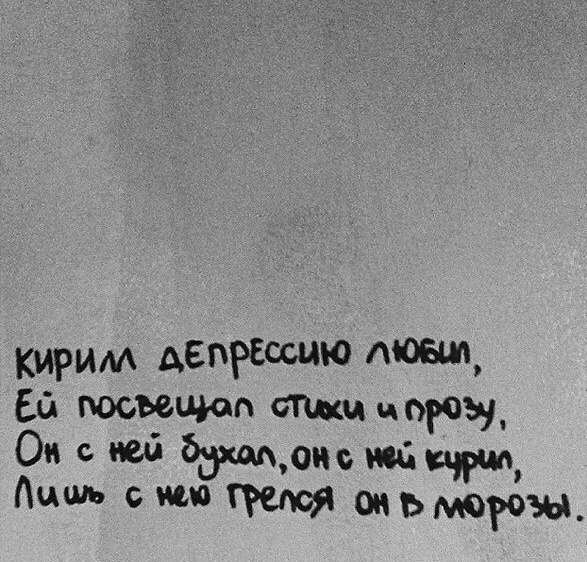 Кирилл депрессию любил,
Ей посвещал стихи и прозу,
Он с ней бухал, он с ней курил,
Лишь с нею грелся он в морозы.